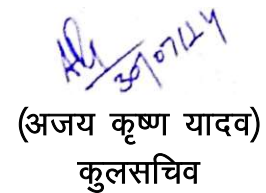 30/07/24
(अजय कृष्ण यादव)
कुलसचिव